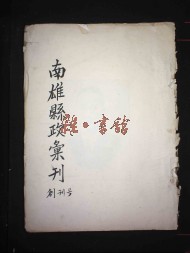 南雄縣政彙刊
創刊号